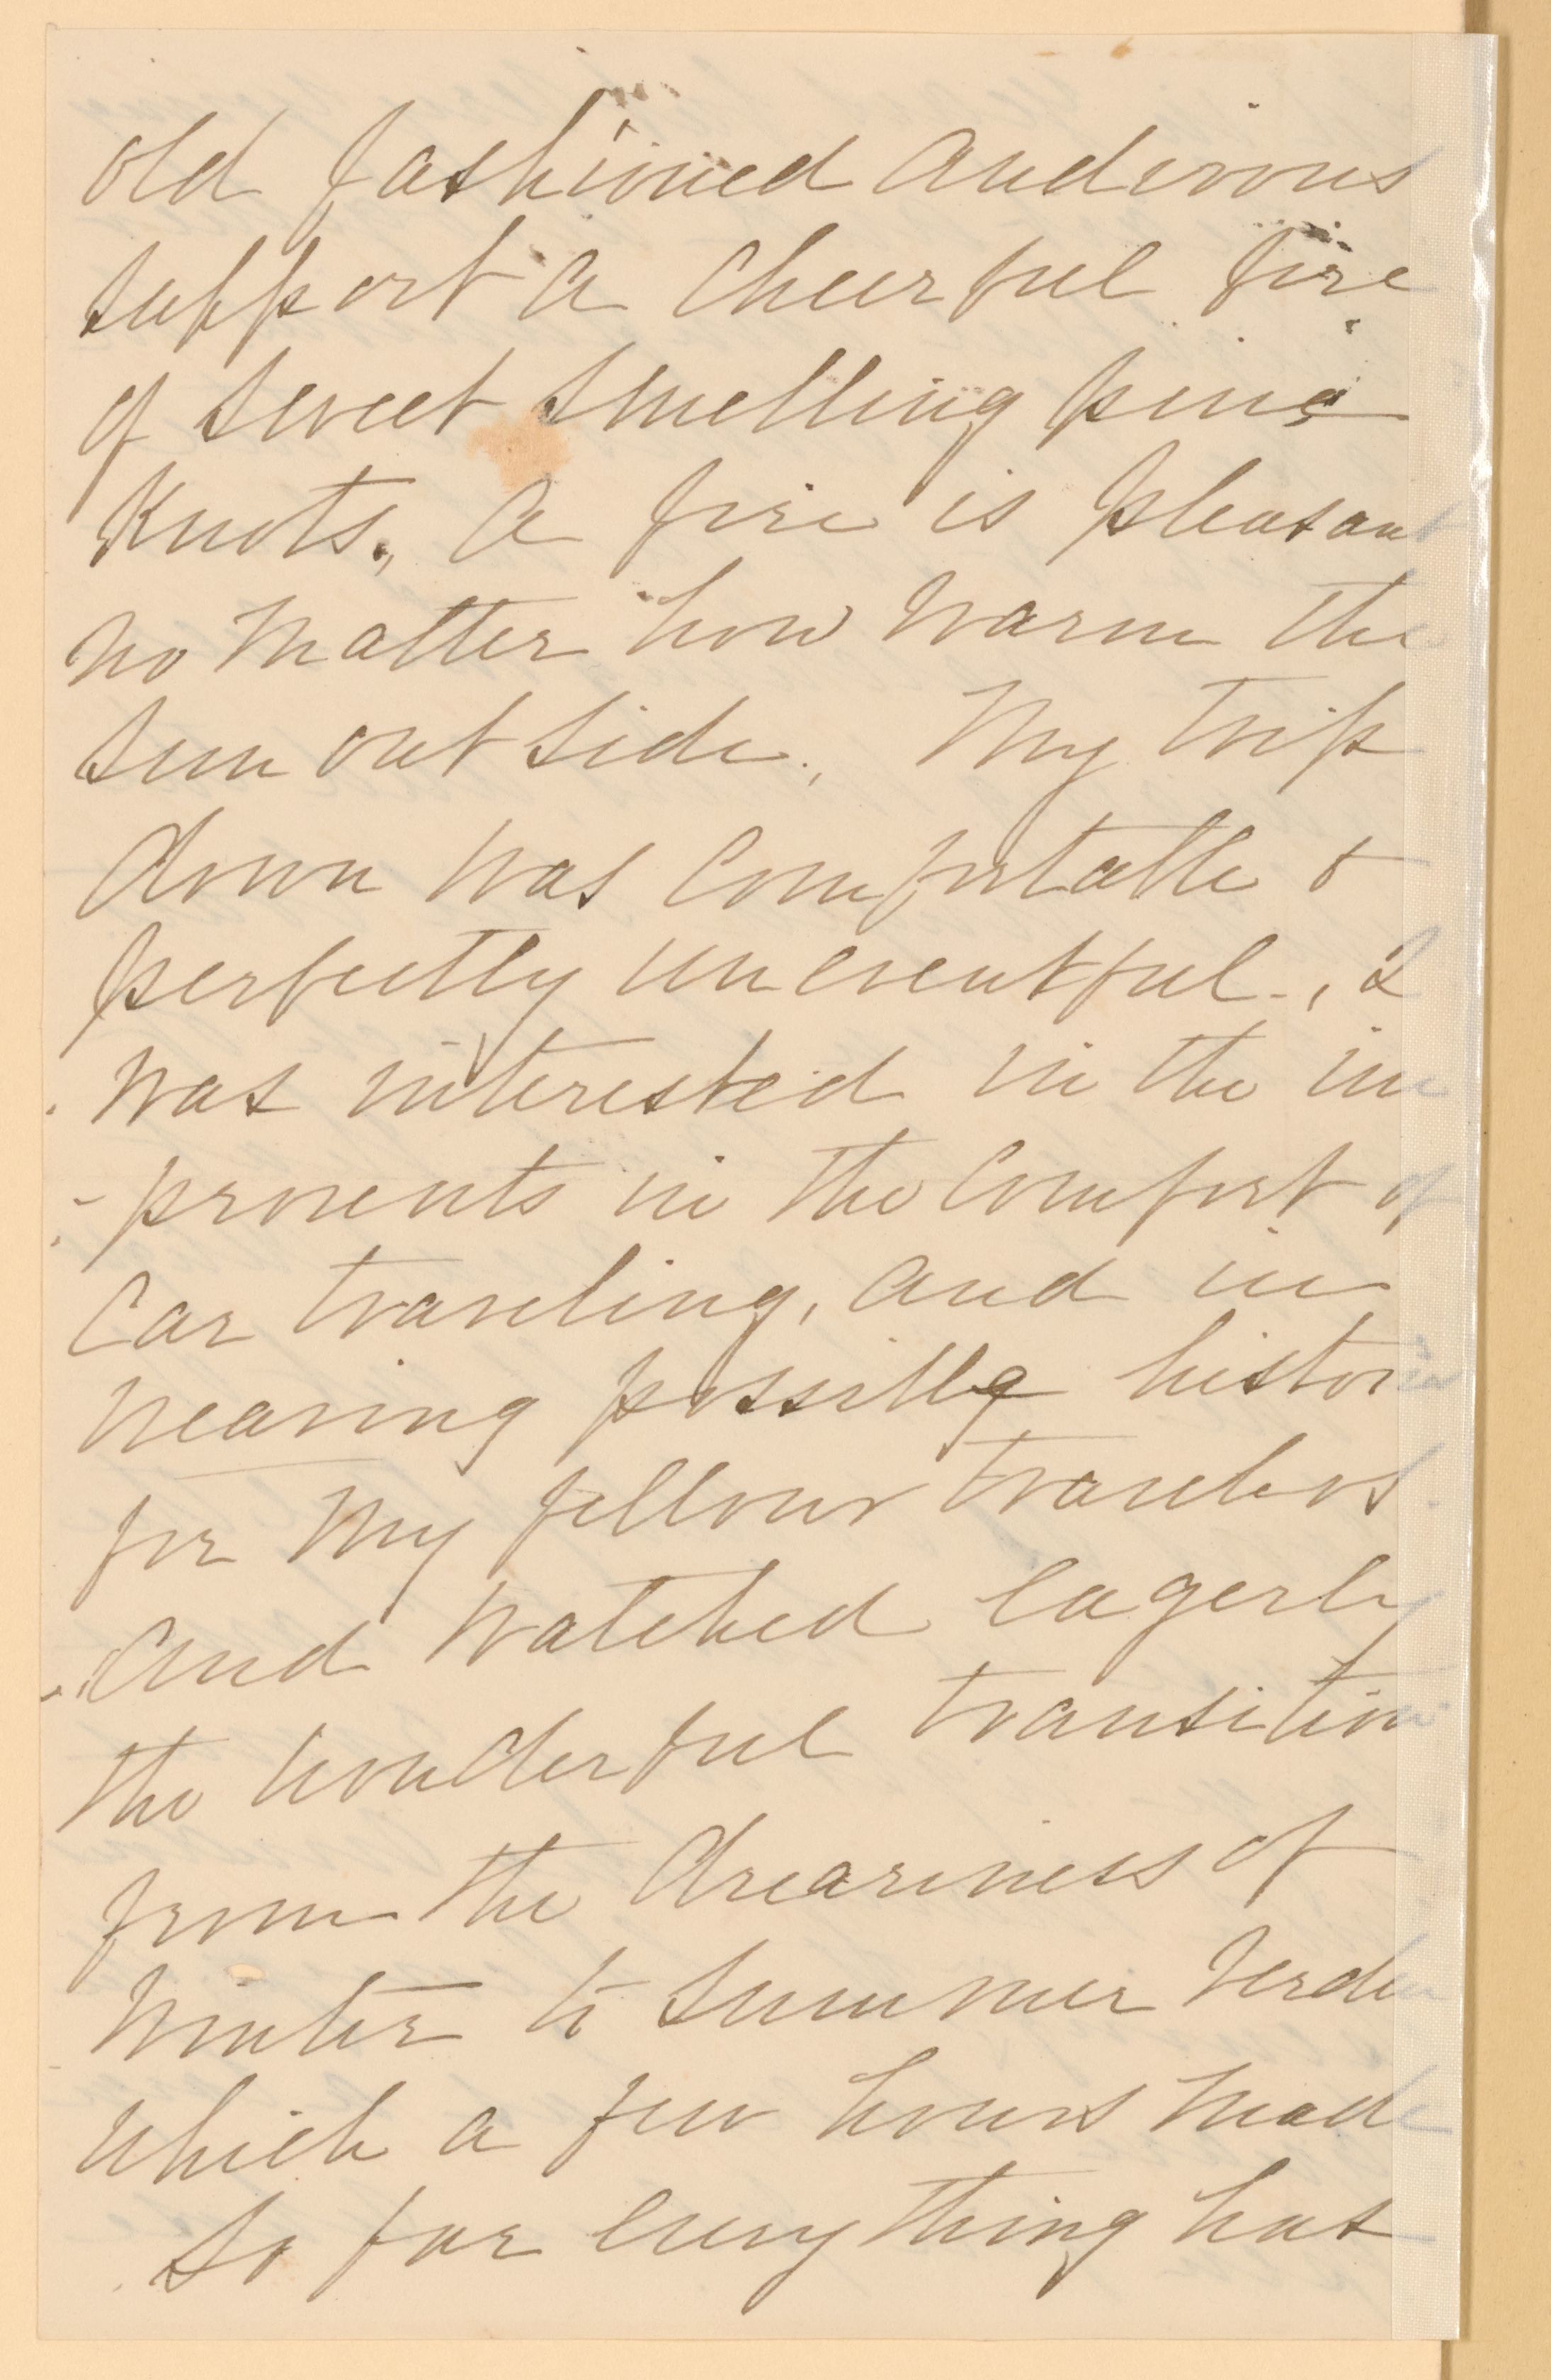 old fashioned andirons
support a cheerful fire
of sweet smelling pine
knots., A fire is pleasant
no matter how warm the
sun outside., My trip
down was comfortable &
perfectly uneventful., I
was interested in the im
-provents in the comfort of
car traveling, and in
weaving possible histories
for my fellow travelers
and watched eagerly
the wonderful transition
from the dreariness of
winter to summer verdu
which a few hours made
So far every thing has